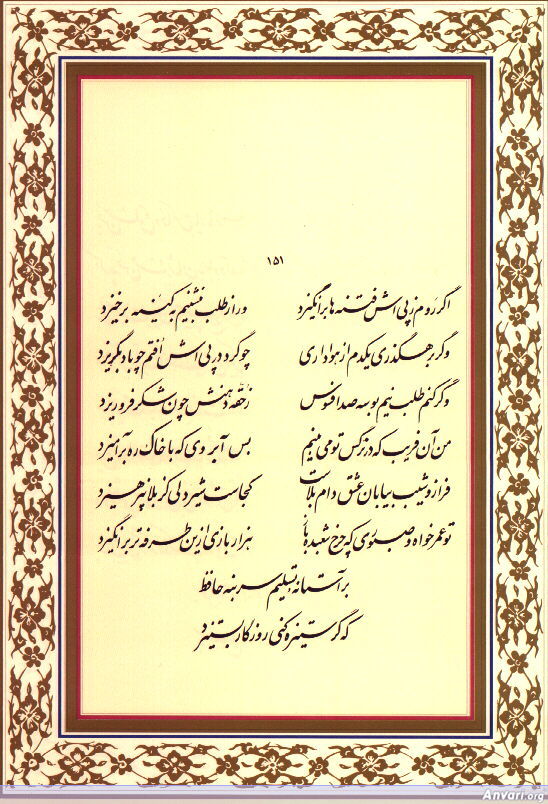 ۱۵۱
اگر روم ز پی اش فتنه ها برانگیزد ور از طلب بنشینم به کینه برخیزد
وگر برهگذری یکدم از هواداری چو گرد در پی اش افتم چو باد بگریزد
وگر کنم طلب نیم بوسه صد افسوس ز حقه دهنش چون شکر فرو ریزد
من آن فریب که در نرگس تو می بینم بس آبروی که با خاک ره برآمیزد
فراز و شیب بیابان عشق دام بلاست کجاست شیردلی کز بلا نپرهیزد
تو عمر خواه و صبوری که چرخ شعبده باز هزار بازی ازین طرفه تر برانگیزد
بر آستانه تسلیم سر بنه حافظ
که گر ستیزه کنی روزگار بستیزد
Anvari.org